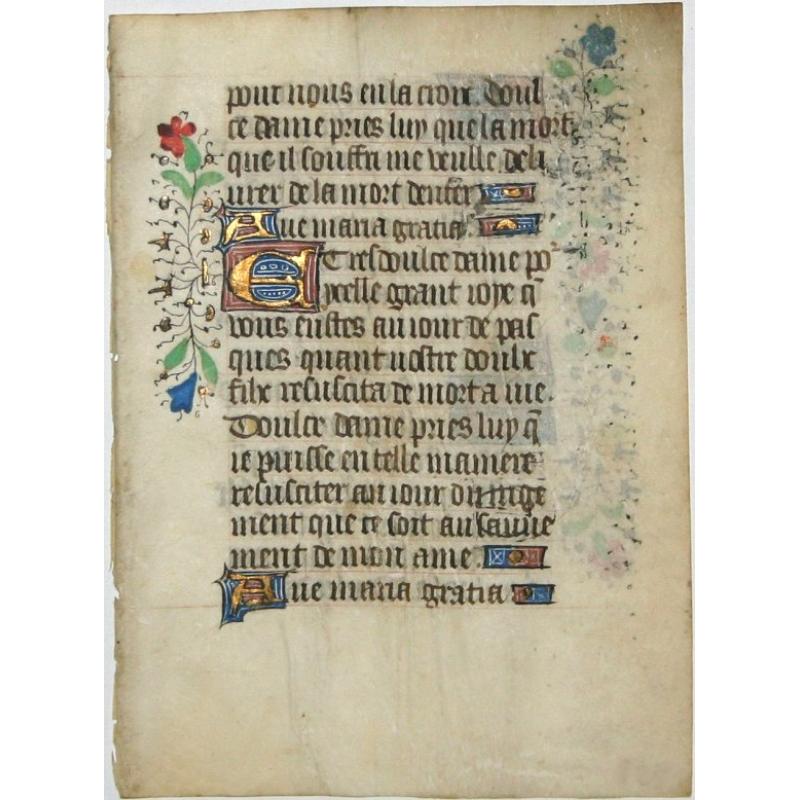 pour nous en la croix. Doul
ce dame pries luy que la mort
que il souffri me veulle deli
urer de la mort denfer
Aue maria gratia
E tresdoulce dame po᷑
ycelle grant ioye q̄
vous eustes au iour de pas
ques quant nostre doulx
filx resuscita de mort a uie.
Doulce dame pries luy q̄
ie puisse en telle maniere
resusciter au iour du iuge
ment que ce soit au sauue
ment de mon ame.
Aue maria gratia